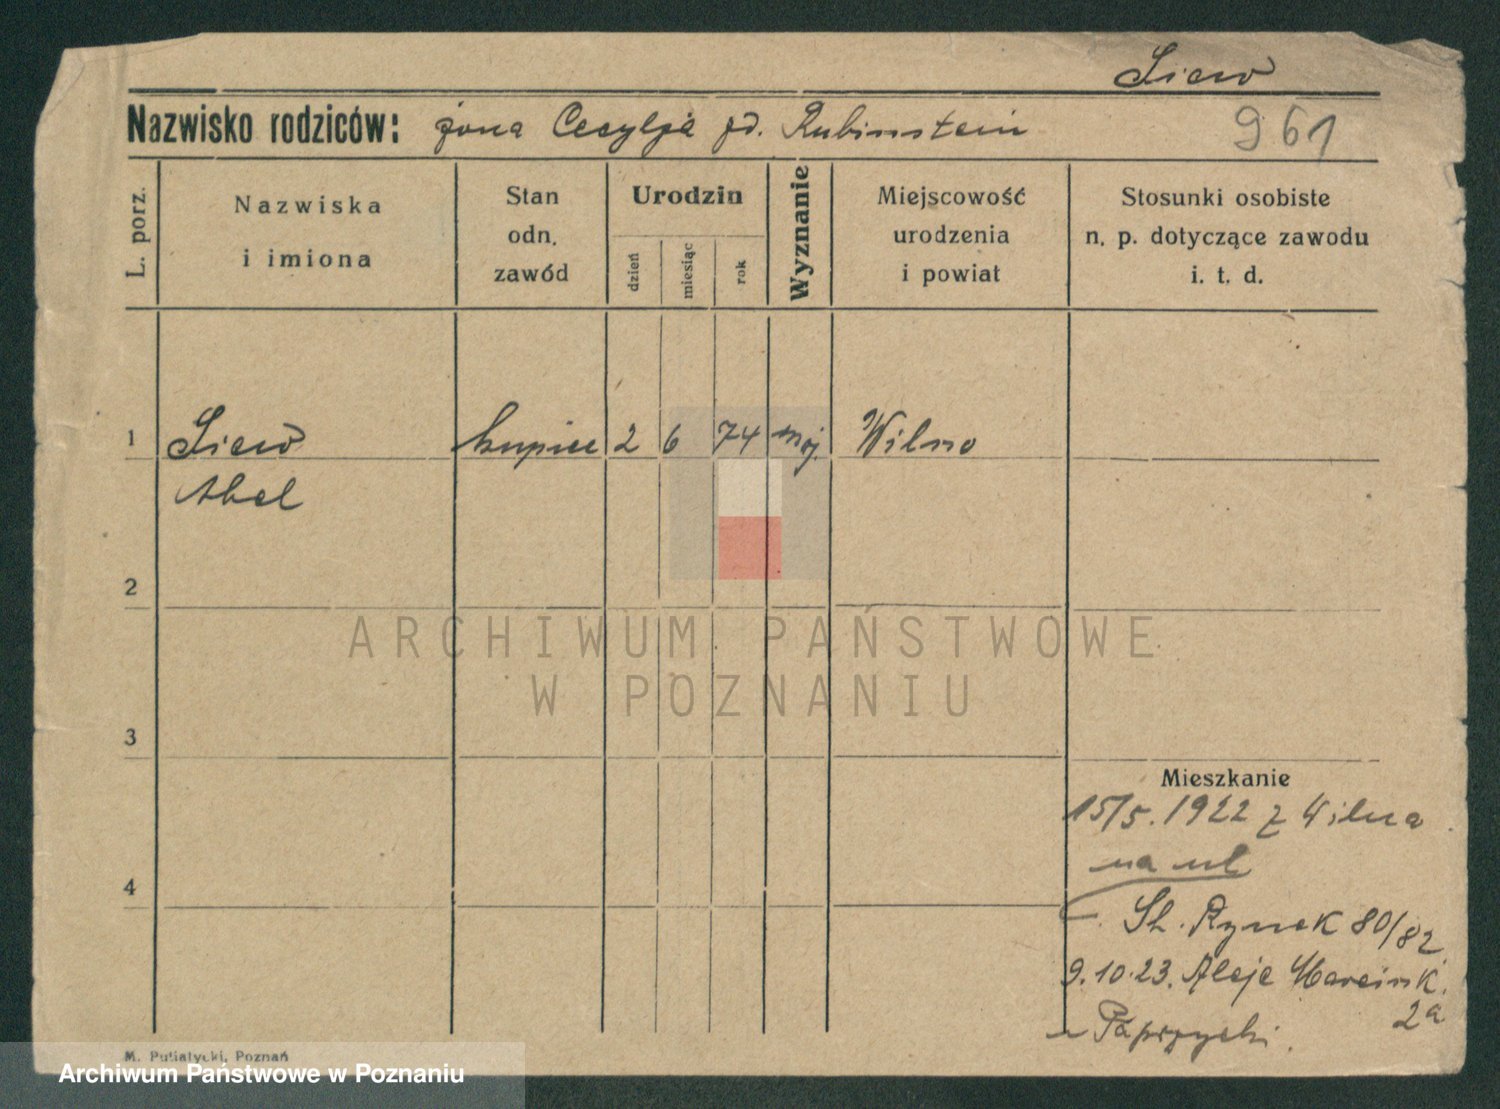 Siew
Nazwisko rodziców: żona Cecylja zd. Rubinstein 961
L. porz.
Nazwiska
i imiona
Stan
odn.
zawód
Urodzin
dzień
miesiąc
rok
Wyznanie
Miejscowość
urodzenia
i powiat
Stosunki osobiste
n. p. dotyczące zawodu
i. t. d.
1 Siew kupiec 2 6 74 moj. Wilno
Abel
2
ARCHIWUM PAŃSTWOWE
W POZNANIU
3
Mieszkanie
15/5. 1922 z Wilna
na ul
St. Rynek 80/82
9.10.23. Aleje Marcink.
2a
4
M. Putiatycki, Poznań
Archiwum Państwowe w Poznaniu